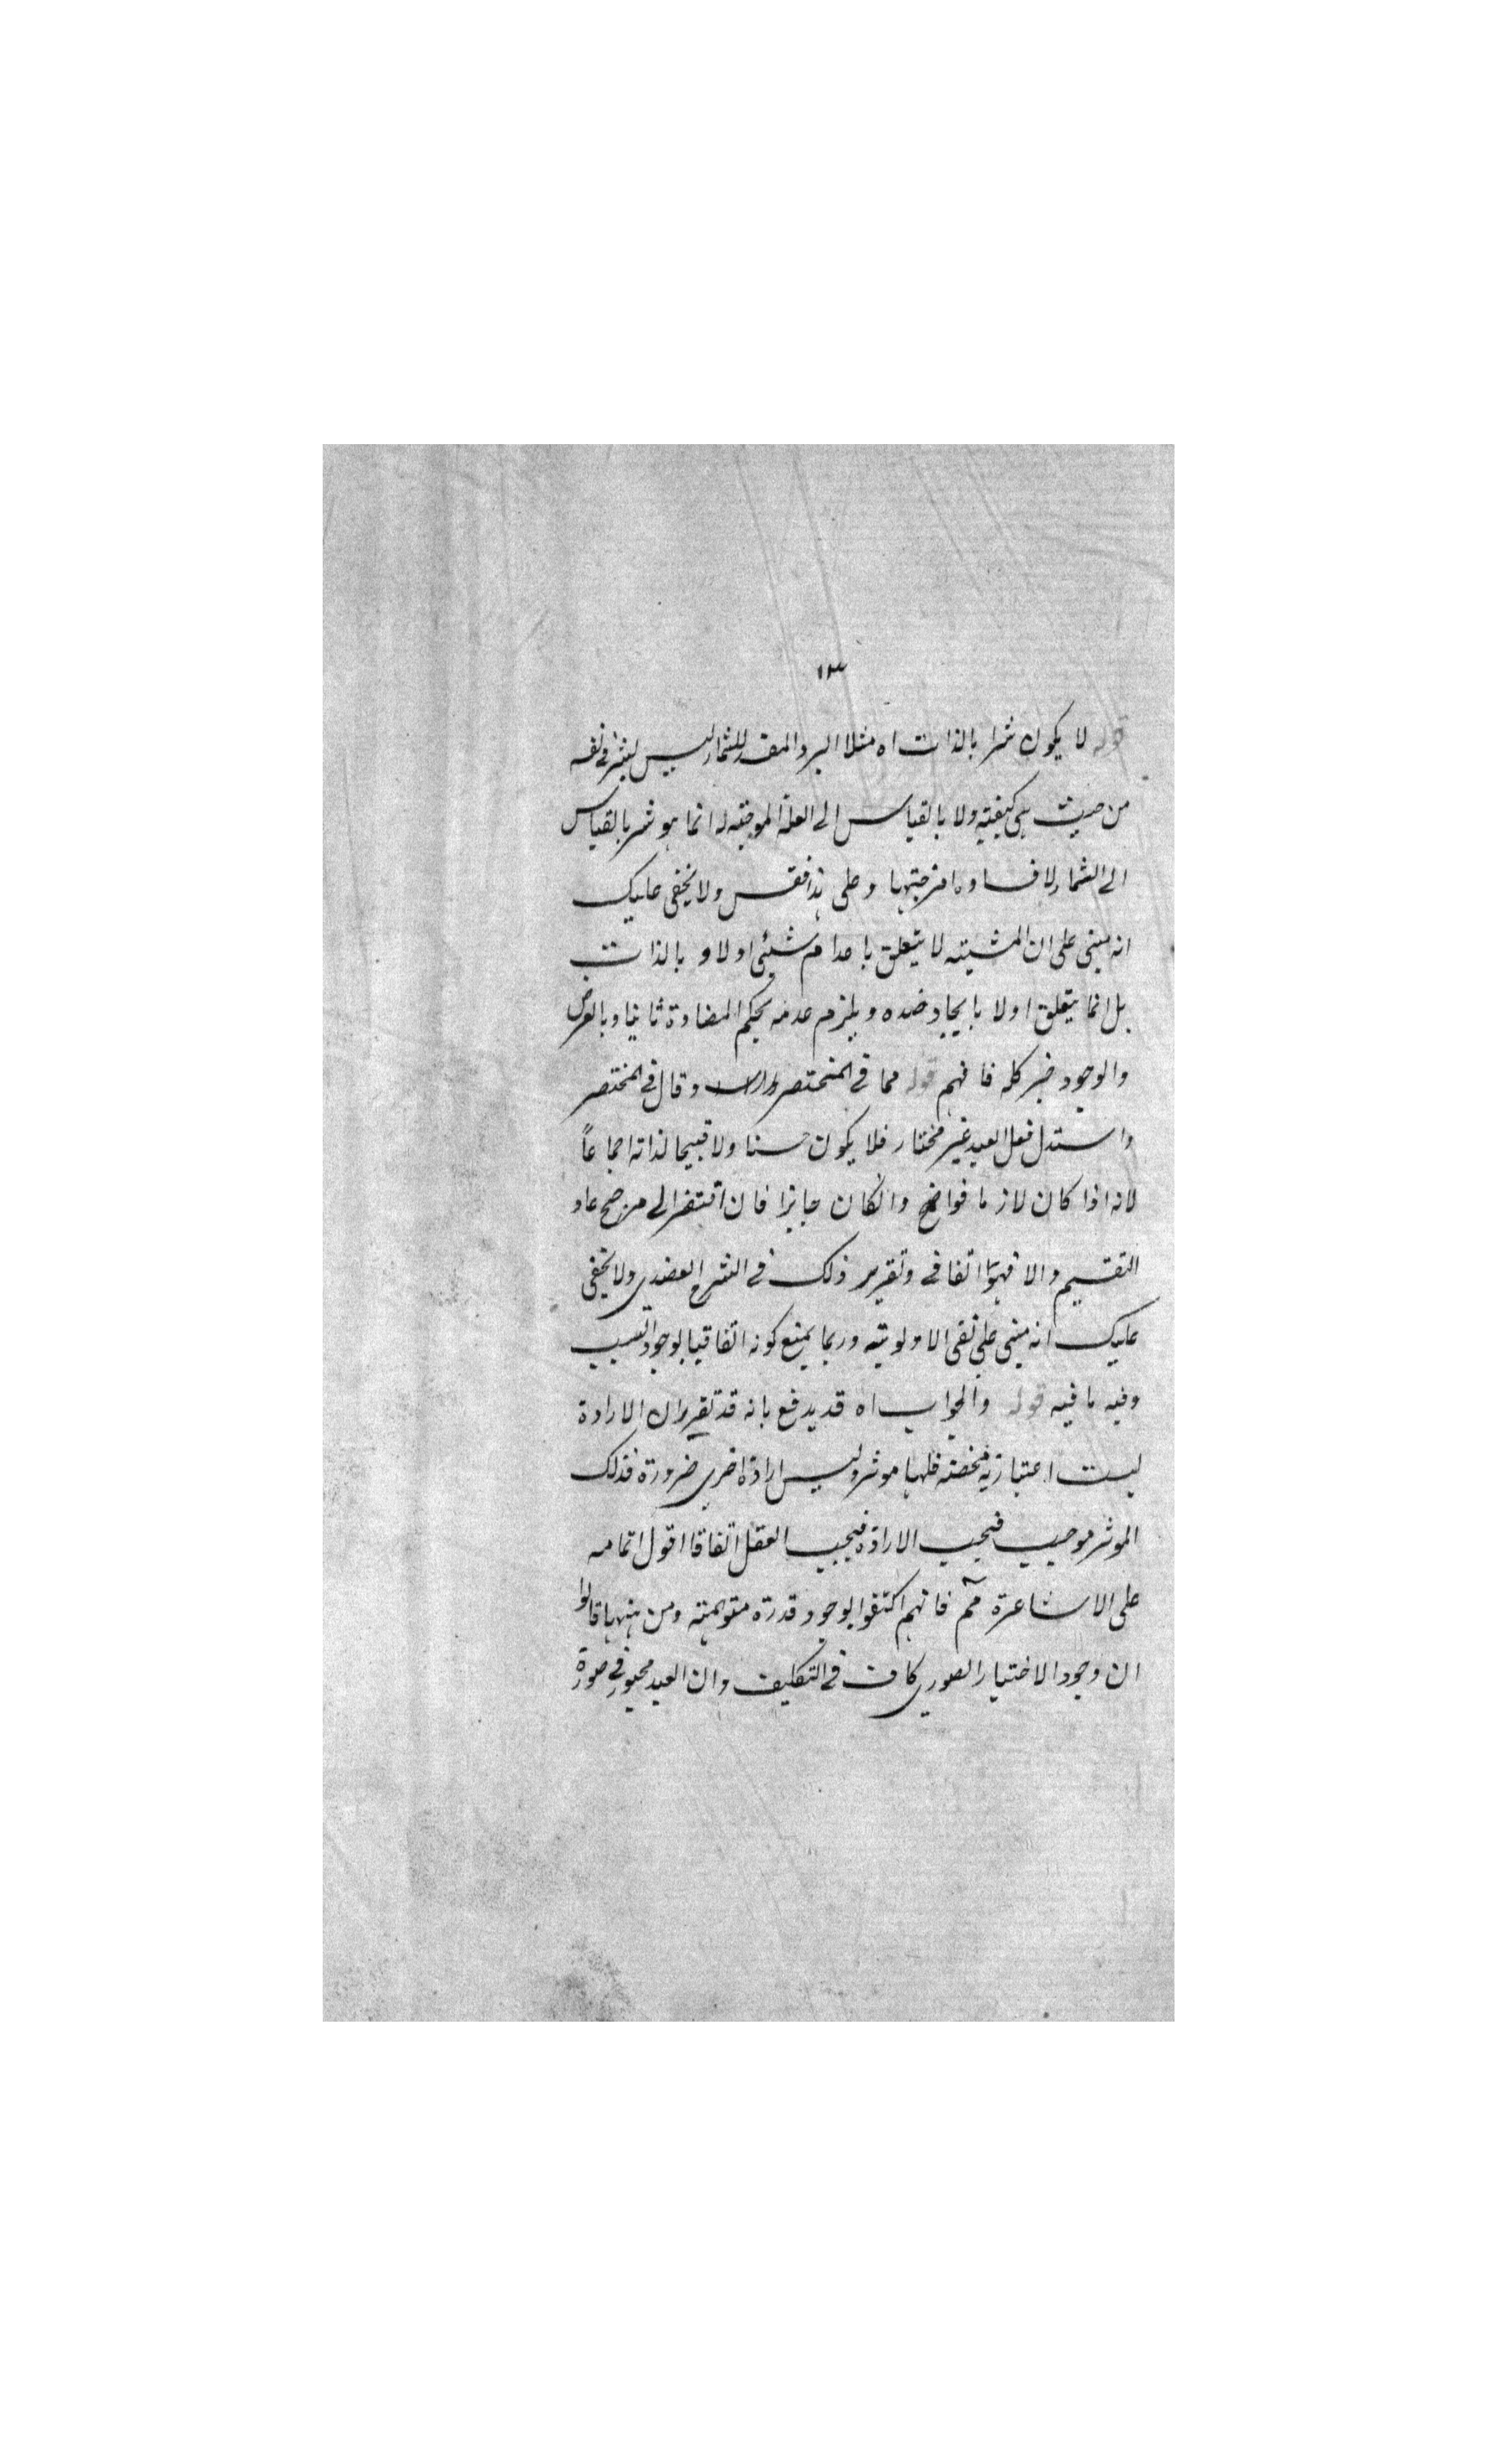 ١٣
قوله لا يكون شرا بالذات اه مثلا البرد المفسد للثمار ليس بشر في نفسه
من حيث هي كيفية ولا بالقياس الى العلة الموجبة له انما هو شر بالقياس
الى الثمار لافساده امزجتها وعلى هذا فقس ولا يخفى عليك
انه مبنى على ان المشيته لا يتعلق باعدام شيئى اولا و بالذات
بل انما يتعلق اولا بايجاد ضده ويلزم عدمه بحكم المضادة ثانيا وبالعرض
والوجود خير كله فافهم قوله مما فى المختصر وقال فى المختصر
واستدل فعل العبد غير مختار فلا يكون حسنا ولا قبيحا لذاته اجماعاً
لانه اذا كان لازما فواضح وانكان جايزا فان افتقر الى مرجح عاد
التقسيم والا فهو اتفاقى وتقرير ذلك فى الشرح العضدى ولا يخفى
عليك انه مبنى على نفى الاولوية وربما يمنع كونه اتفاقيا لوجود السبب
وفيه ما فيه قوله والجواب اه قد يدفع بانه قد تقرر ان الارادة
ليست اعتبارية محضة فلها موثر وليس ارادة اخرى ضرورة فذلك
الموثر موجب فيجب الارادة فيجب العقل اتفاقا اقول اتمامه
على الاشاعرة مم فانهم اكتفوا بوجود قدرة متوهمة ومن ههنا قالوا
ان وجود الاختيار الصورى كاف فى التكليف وان العبد مجبور فى صورة